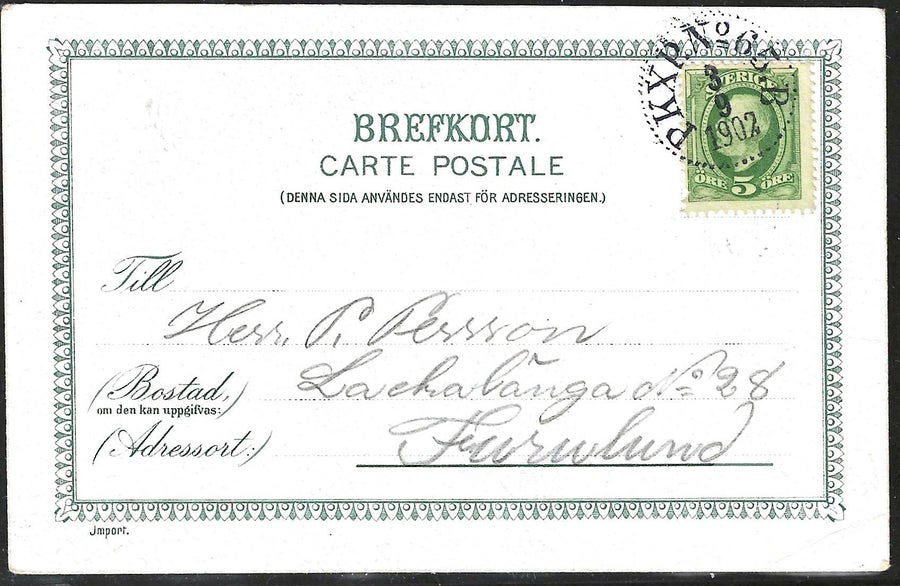 PKXP No 65 B
3
9
1902
SVERIGE
ÖRE 5 ÖRE
BREFKORT.
CARTE POSTALE
(DENNA SIDA ANVÄNDES ENDAST FÖR ADRESSERINGEN.)
Till
Herr. P. Persson
(Bostad,)
om den kan uppgifvas:
Lackalänga No 28
(Adressort:)
Furulund
Import.